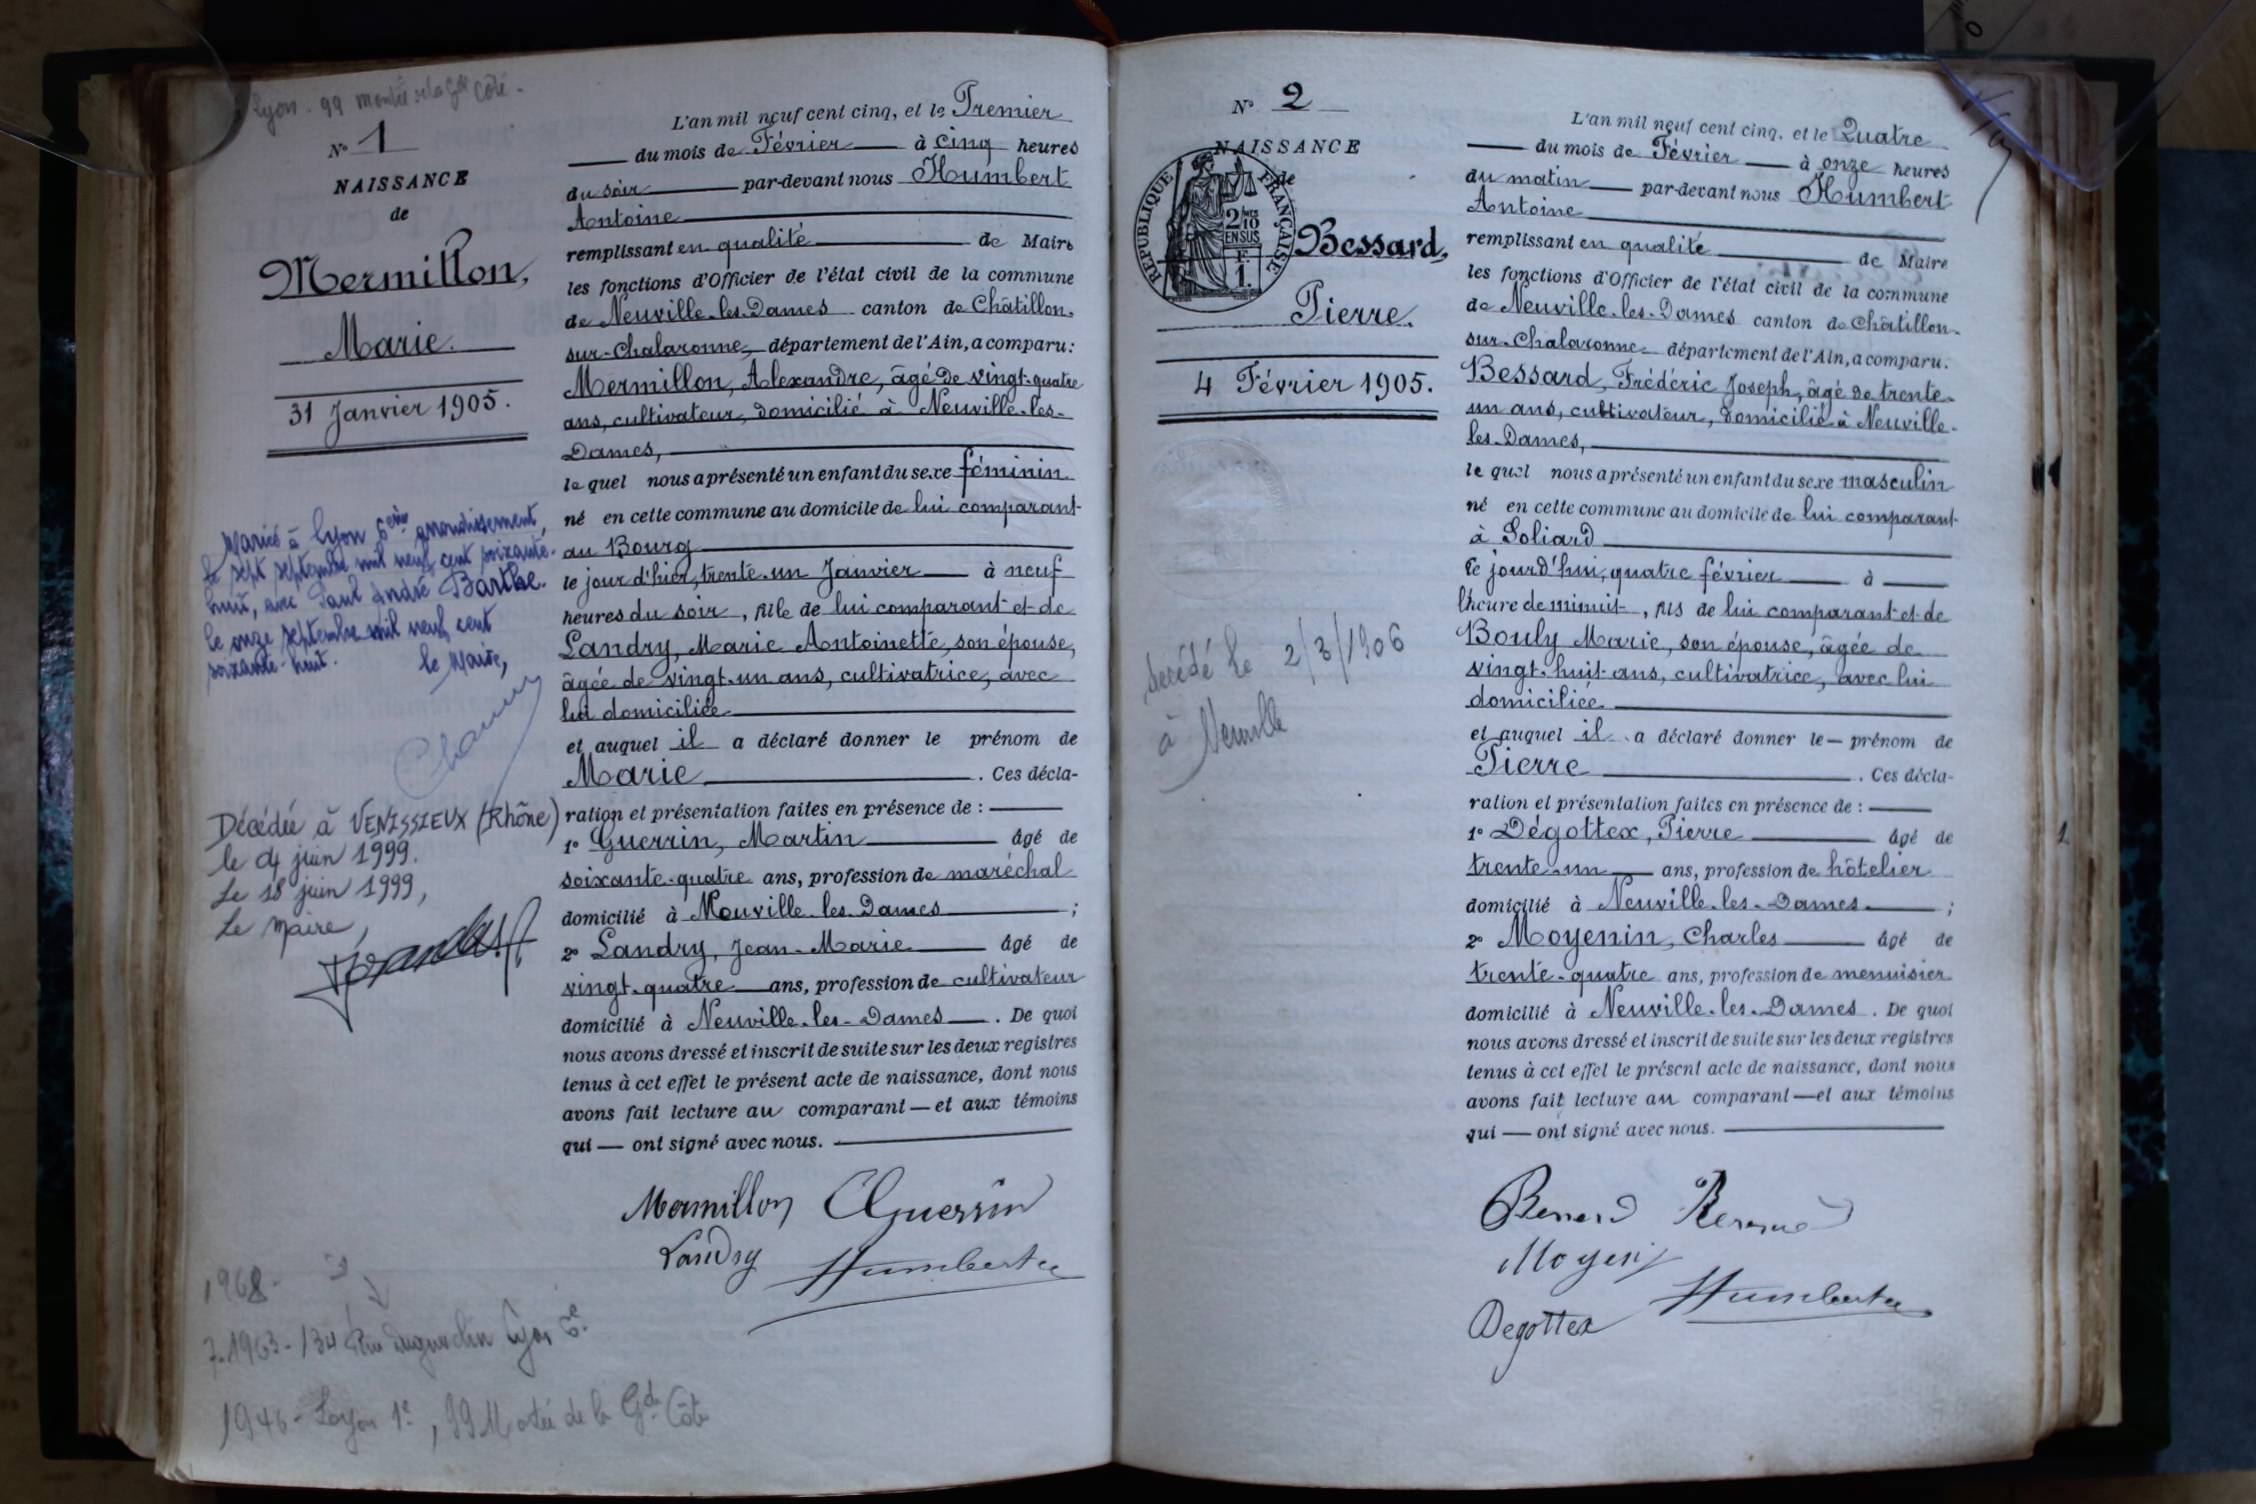 Lyon - 99 montée de la Gde Côte -
N° 1
NAISSANCE
de
Mermillon,
Marie.
31 Janvier 1905.
Mariée à Lyon 6ème arrondissement,
le sept septembre mil neuf cent soixante-
huit, avec Paul André Barthe.
le onze septembre mil neuf cent
soixante-huit. le Maire,
Décédée à VENISSIEUX (Rhône)
le 04 juin 1999.
Le 18 juin 1999,
Le Maire,
L'an mil neuf cent cinq, et le Premier
du mois de Février à cinq heures
du soir par-devant nous Humbert
Antoine
remplissant en qualité de Maire
les fonctions d'Officier de l'état civil de la commune
de Neuville-les-Dames canton de Châtillon-
sur-Chalaronne, département de l'Ain, a comparu:
Mermillon, Alexandre, âgé de vingt-quatre
ans, cultivateur, domicilié à Neuville-les-
Dames,
le quel nous a présenté un enfant du sexe féminin
né en cette commune au domicile de lui comparant
au Bourg
le jour d'hier, trente-un Janvier à neuf
heures du soir, fille de lui comparant et de
Landry, Marie Antoinette, son épouse,
âgée de vingt-un ans, cultivatrice, avec
lui domiciliée
et auquel il a déclaré donner le prénom de
Marie . Ces décla-
ration et présentation faites en présence de :
1° Guerrin, Martin âgé de
soixante-quatre ans, profession de maréchal
domicilié à Neuville-les-Dames ;
2° Landry, Jean-Marie âgé de
vingt-quatre ans, profession de cultivateur
domicilié à Neuville-les-Dames . De quoi
nous avons dressé et inscrit de suite sur les deux registres
tenus à cet effet le présent acte de naissance, dont nous
avons fait lecture au comparant — et aux témoins
qui — ont signé avec nous.
Mermillon Guerrin
Landry Humbert
1968 -
7.1963 - 134 Rue Duguesclin Lyon 6e.
1946 - Lyon 1e, 99 Montée de la Gde Côte
N° 2
NAISSANCE
de
RÉPUBLIQUE FRANÇAISE
2/10
EN SUS
F.
1.
Bessard,
Pierre.
4 Février 1905.
décédé le 2/3/1906
à Neuville
L'an mil neuf cent cinq, et le Quatre
du mois de Février à onze heures
du matin par-devant nous Humbert
Antoine
remplissant en qualité de Maire
les fonctions d'Officier de l'état civil de la commune
de Neuville-les-Dames canton de Châtillon-
sur-Chalaronne département de l'Ain, a comparu:
Bessard, Frédéric Joseph, âgé de trente-
un ans, cultivateur, domicilié à Neuville-
les-Dames,
le quel nous a présenté un enfant du sexe masculin
né en cette commune au domicile de lui comparant
à Soliard
ce jourd'hui, quatre février à
l'heure de minuit, fils de lui comparant et de
Bouly Marie, son épouse, âgée de
vingt-huit ans, cultivatrice, avec lui
domiciliée
et auquel il a déclaré donner le — prénom de
Pierre . Ces décla-
ration et présentation faites en présence de :
1° Dégottex, Pierre âgé de
trente-un ans, profession de hôtelier
domicilié à Neuville-les-Dames ;
2° Moyenin, Charles âgé de
trente-quatre ans, profession de menuisier
domicilié à Neuville-les-Dames . De quoi
nous avons dressé et inscrit de suite sur les deux registres
tenus à cet effet le présent acte de naissance, dont nous
avons fait lecture au comparant — et aux témoins
qui — ont signé avec nous.
Humbert
Degottex